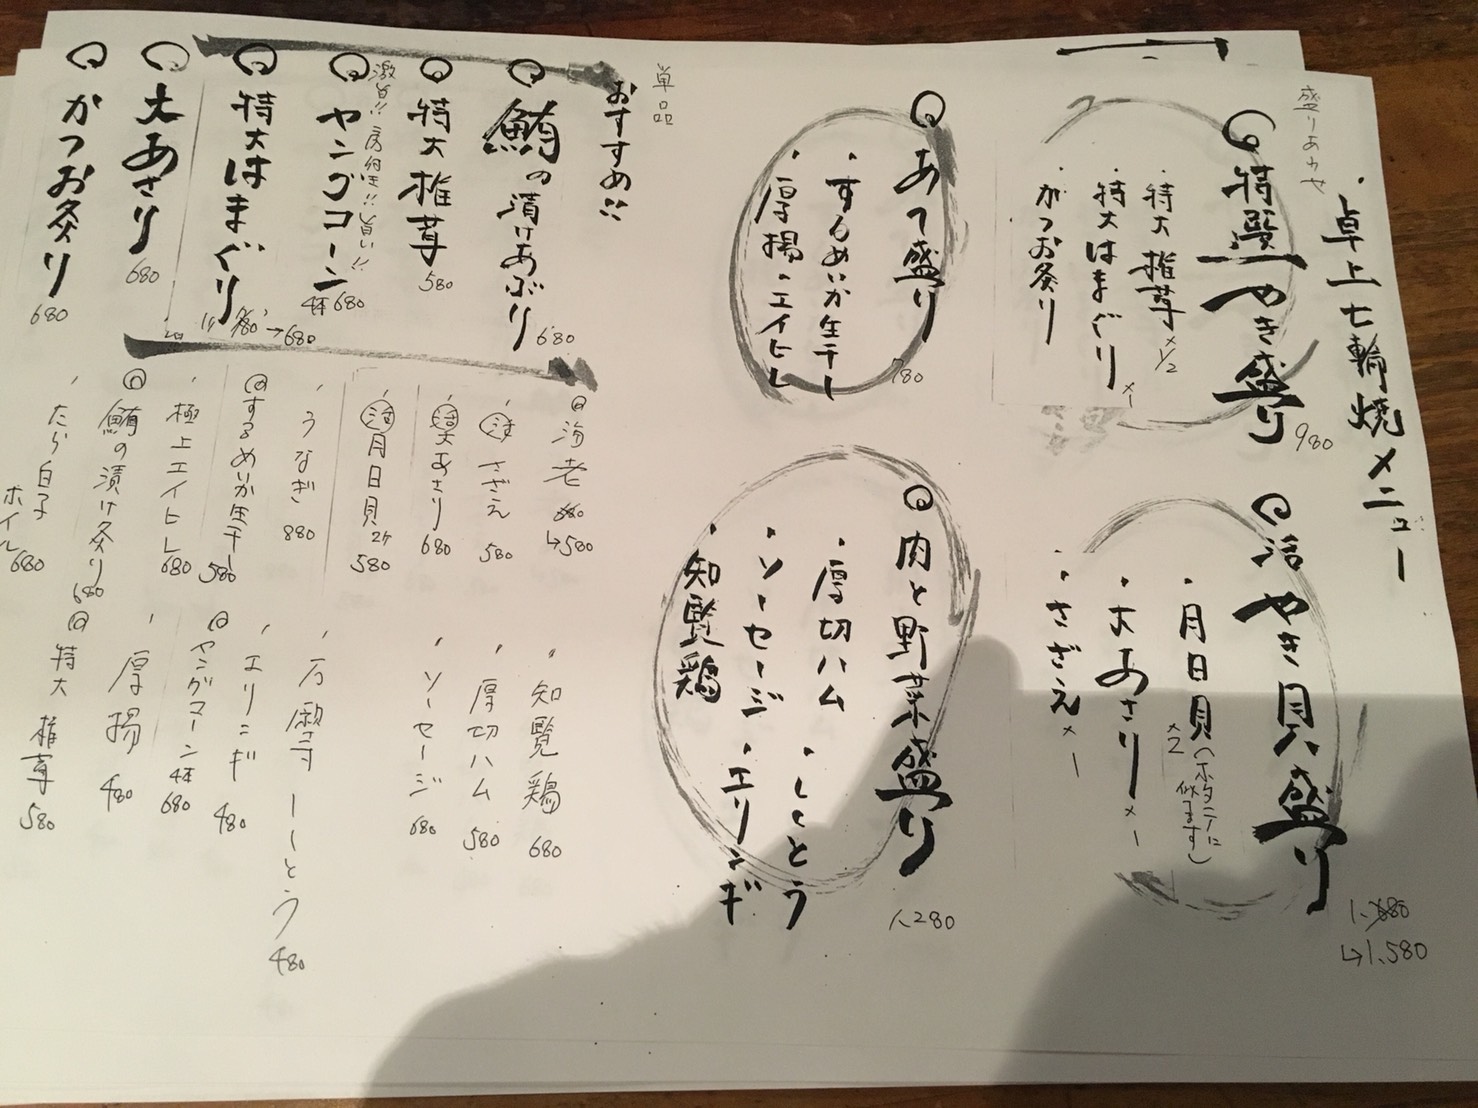 卓上七輪焼メニュー
盛りあわせ
特選やき盛り 980
・特大椎茸×1/2
・特大はまぐり×1
・かつお炙り
活やき貝盛り 1,580
・月日貝×2(ホタテに似てます)
・大あさり×1
・さざえ×1
あて盛り 780
・するめいか生干し
・厚揚・エイヒレ
肉と野菜盛り 1,280
・厚切ハム・ししとう
・ソーセージ・エリンギ
・知覧鶏
単品
おすすめ!!
鮪の漬けあぶり 680
特大椎茸 580
激旨!!房付!!旨い!!
ヤングコーン 4本 680
特大はまぐり 780→680
大あさり 680
かつお炙り 680
海老 680→580
活さざえ 580
特大あさり 680
活月日貝 2ケ 580
・うなぎ 880
するめいか生干し 580
・極上エイヒレ 680
鮪の漬け炙り 680
・たら白子ホイル 680
〃知覧鶏 680
〃厚切ハム 580
・ソーセージ 680
・万願寺ししとう 480
・エリンギ 480
ヤングコーン 4本 680
・厚揚 480
特大椎茸 580